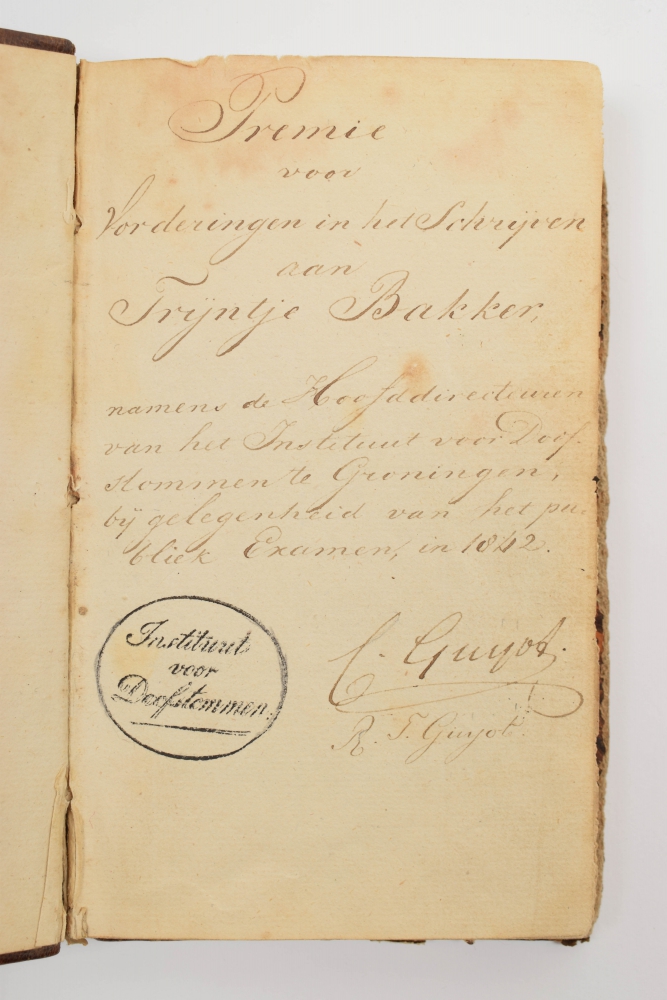 Premie
voor
Vorderingen in het Schrijven
aan
Trijntje Bakker,
namens de Hoofddirecteuren
van het Instituut voor Doof-
stommen te Groningen,
bij gelegenheid van het pu-
bliek Examen, in 1842.
Instituut
voor
Doofstommen.
C. Guyot.
R. T. Guyot.